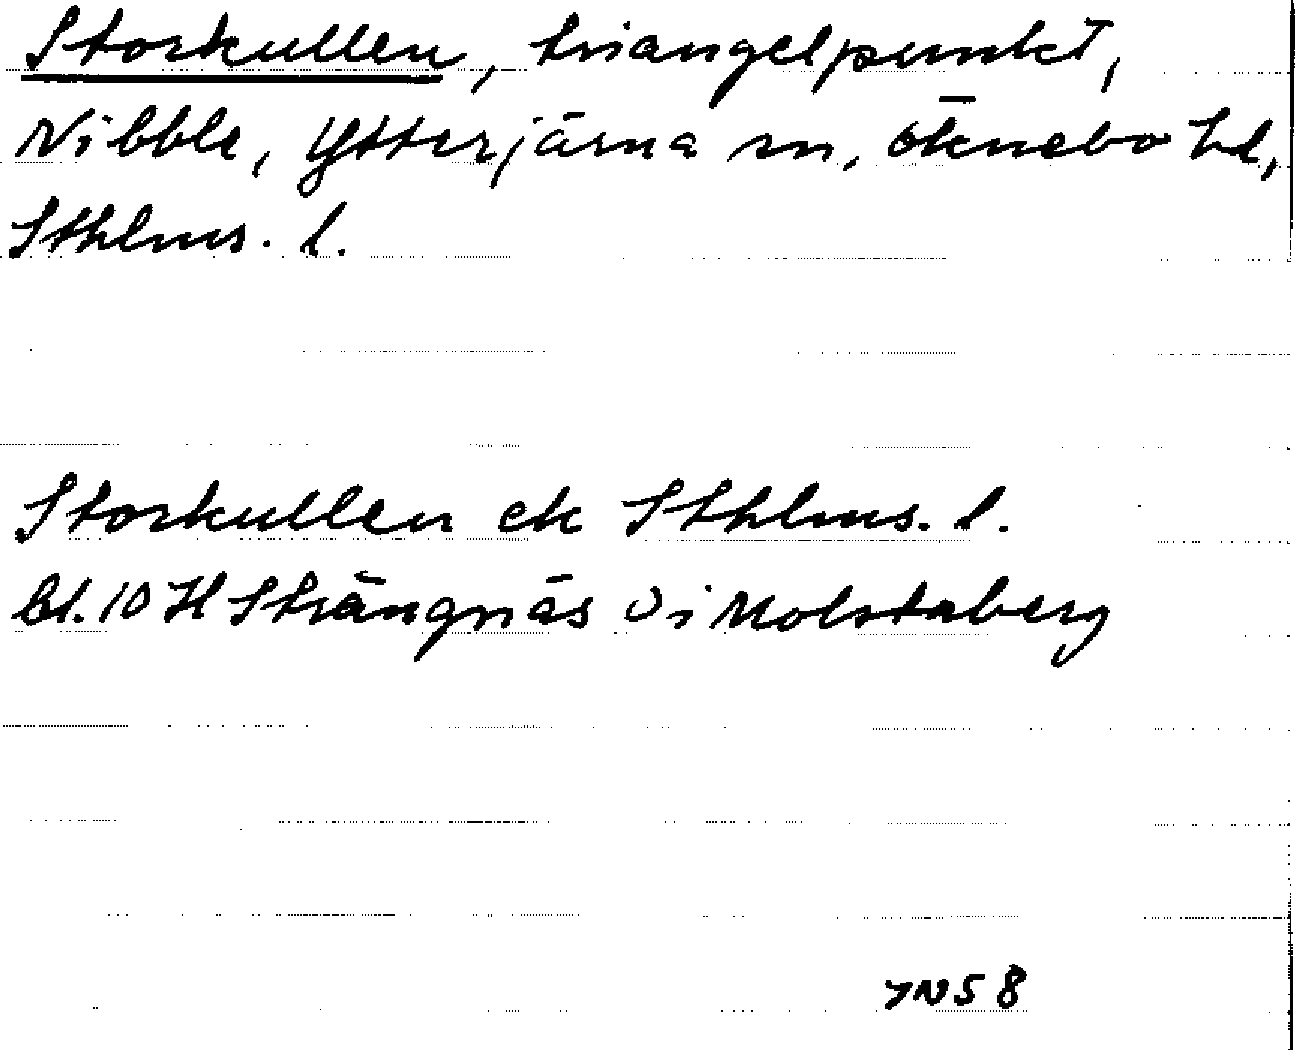 Storkullen, triangelpunkt,
Nibble, Ytterjärna sn, Öknebo hd,
Sthlms. l.
Storkullen ek Sthlms. l.
bl. 10 H Strängnäs Ö i Molstaberg